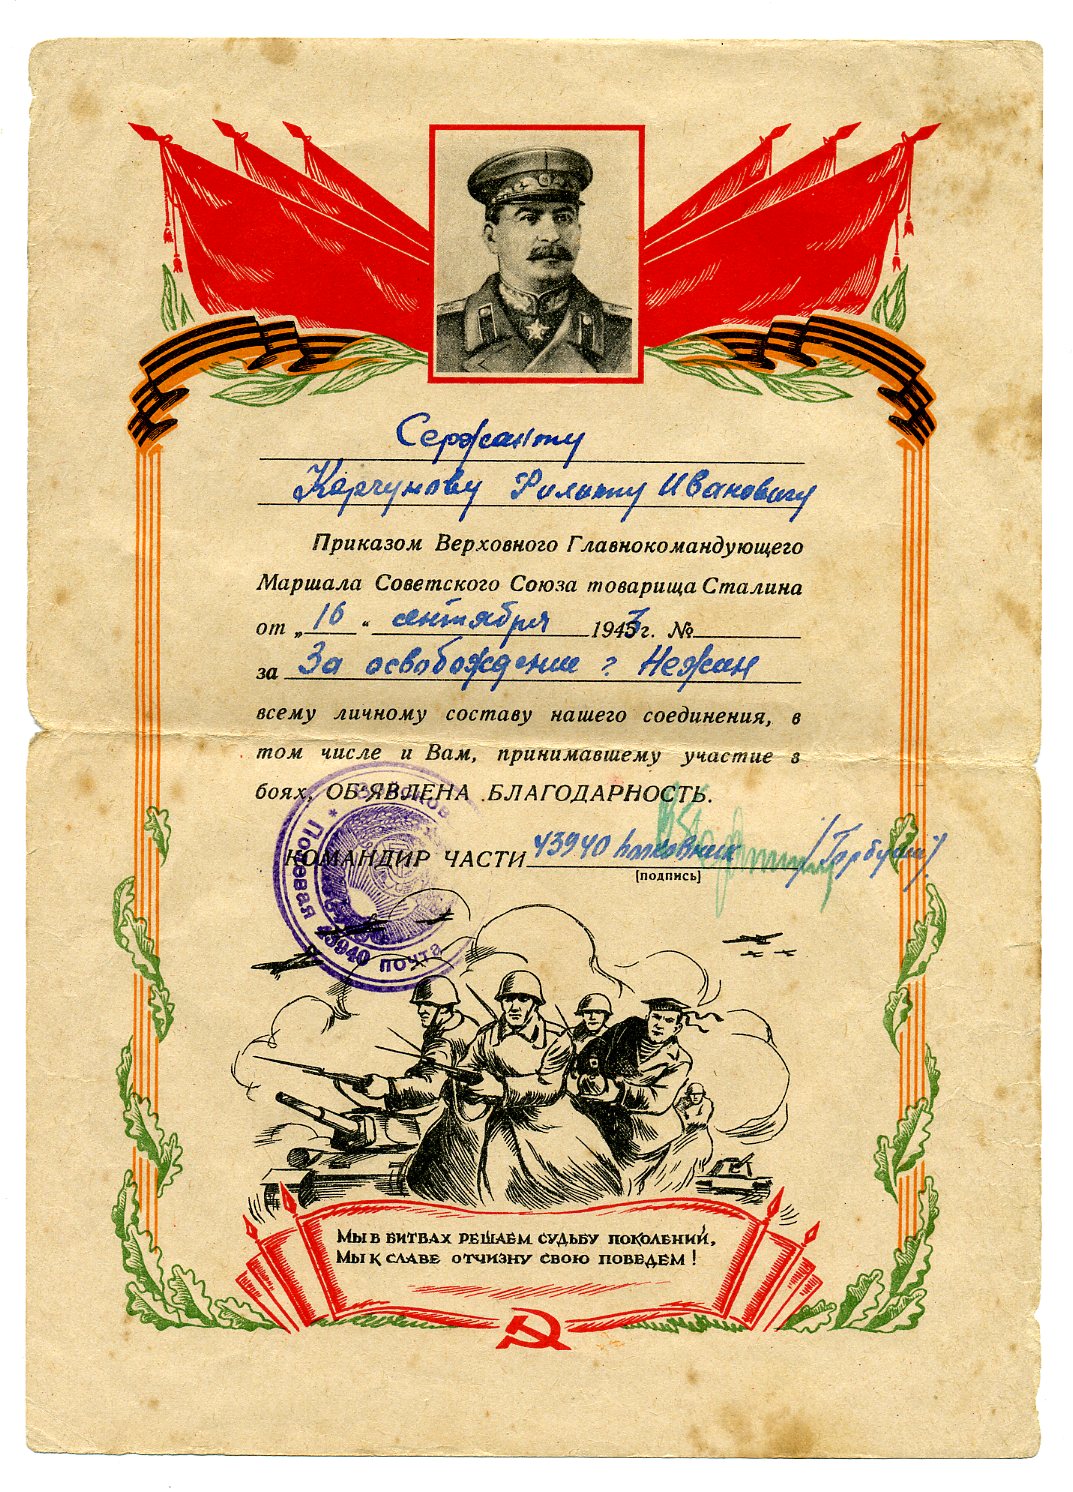 Сержанту
Корчунову Филипу Ивановичу
Приказом Верховного Главнокомандующего
Маршала Советского Союза товарища Сталина
от „16“ сентября 1943г. №
за За освобождение г. Нежин
всему личному составу нашего соединения, в
том числе и Вам, принимавшему участие в
боях, ОБ'ЯВЛЕНА БЛАГОДАРНОСТЬ.
КОМАНДИР ЧАСТИ 43940 полковник
(подпись)
Полевая почта
43940
Мы в битвах решаем судьбу поколений,
Мы к славе отчизну свою поведем!